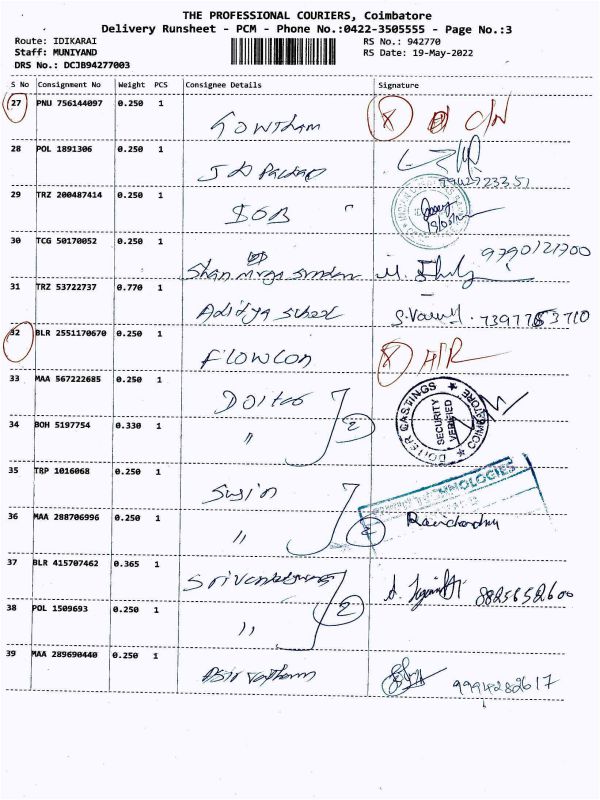 THE PROFESSIONAL COURIERS, Coimbatore
Delivery Runsheet - PCM - Phone No.:0422-3505555 - Page No.:3
Route: IDIKARAI RS No.: 942770
Staff: MUNIYAND RS Date: 19-May-2022
DRS No.: DCJB94277003
S No Consignment No Weight PCS Consignee Details Signature
27 PNU 756144097 0.250 1
Gowtham
28 POL 1891306 0.250 1
9942723351
29 TRZ 200487414 0.250 1
30 TCG 50170052 0.250 1
9790121700
31 TRZ 53722737 0.770 1
Aditya
32 BLR 2551170670 0.250 1
Flowcon
33 MAA 567222685 0.250 1
34 BOH 5197754 0.330 1
" 2
DOITER CASTINGS COIMBATORE
SECURITY VERIFIED
35 TRP 1016068 0.250 1
TECHNOLOGIES
36 MAA 288706996 0.250 1
" 2
37 BLR 415707462 0.365 1
8825652600
38 POL 1509693 0.250 1
" 2
39 MAA 289690440 0.250 1
9994282617